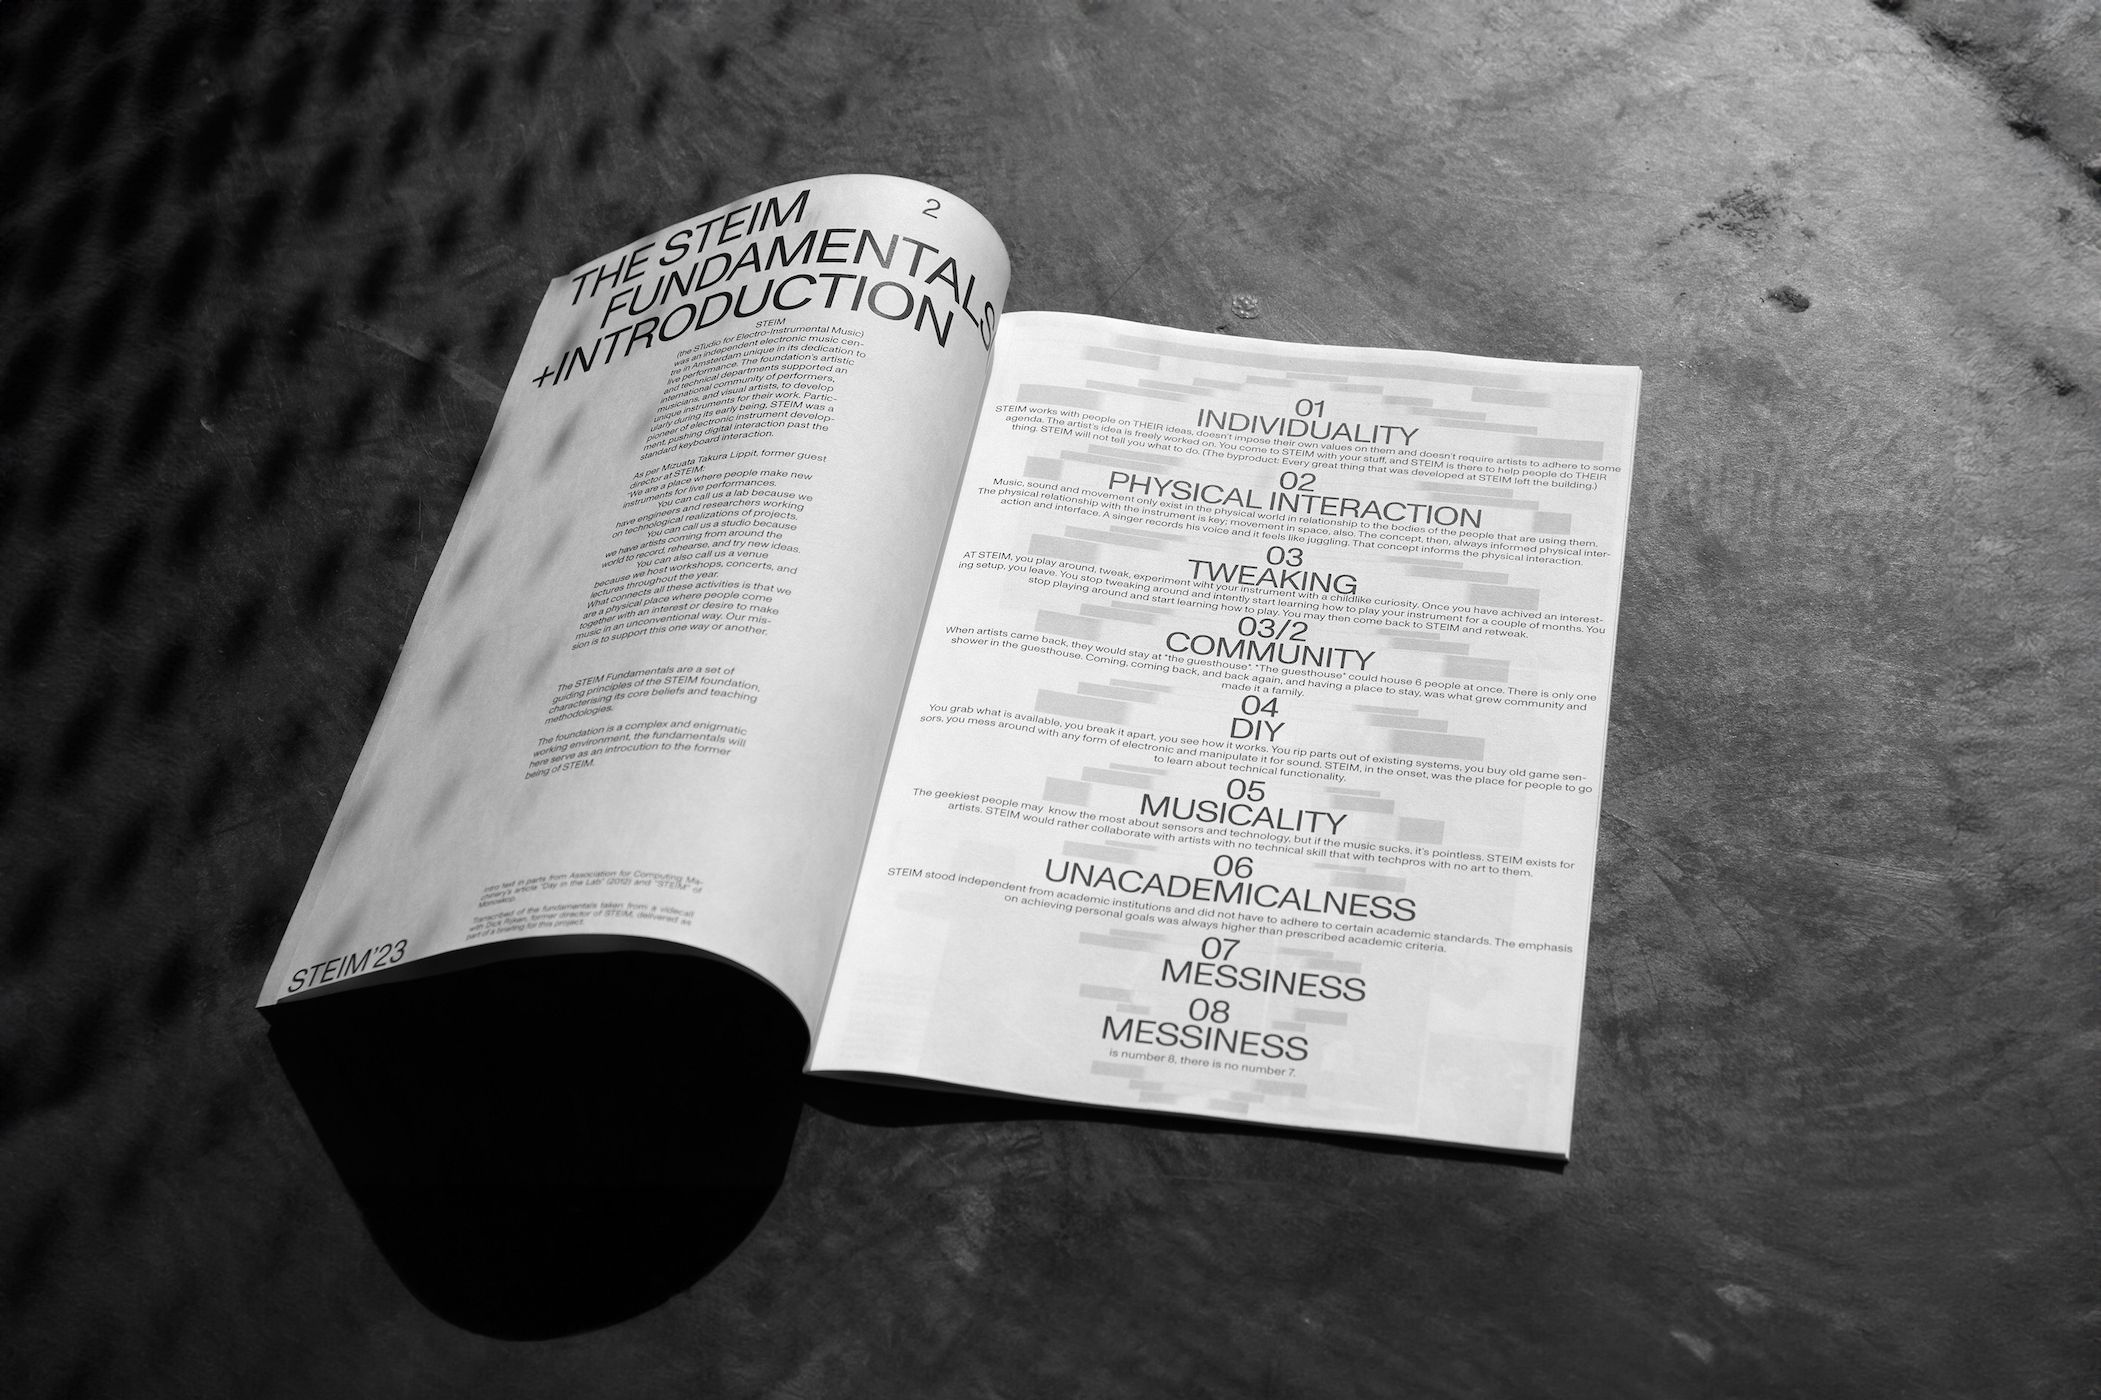 2
THE STEIM
FUNDAMENTALS
+INTRODUCTION
STEIM
(the STudio for Electro-Instrumental Music)
was an independent electronic music cen-
tre in Amsterdam unique in its dedication to
live performance. The foundation's artistic
and technical departments supported an
international community of performers,
musicians, and visual artists, to develop
unique instruments for their work. Partic-
ularly during its early being, STEIM was a
pioneer of electronic instrument develop-
ment, pushing digital interaction past the
standard keyboard interaction.
As per Mizuata Takura Lippit, former guest
director at STEIM:
"We are a place where people make new
instruments for live performances.
You can call us a lab because we
have engineers and researchers working
on technological realizations of projects,
You can call us a studio because
we have artists coming from around the
world to record, rehearse, and try new ideas.
You can also call us a venue
because we host workshops, concerts, and
lectures throughout the year.
What connects all these activities is that we
are a physical place where people come
together with an interest or desire to make
music in an unconventional way. Our mis-
sion is to support this one way or another.
The STEIM Fundamentals are a set of
guiding principles of the STEIM foundation,
characterising its core beliefs and teaching
methodologies.
The foundation is a complex and enigmatic
working environment, the fundamentals will
here serve as an introcution to the former
being of STEIM.
Intro text in parts from Association for Computing Ma-
chinery's article "Day in the Lab" (2012) and "STEIM" of
Monoskop.
Transcribed of the fundamentals taken from a videcall
with Dick Rijken, former director of STEIM, delivered as
part of a briefing for this project.
STEIM'23
01
INDIVIDUALITY
STEIM works with people on THEIR ideas, doesn't impose their own values on them and doesn't require artists to adhere to some
agenda. The artist's idea is freely worked on. You come to STEIM with your stuff, and STEIM is there to help people do THEIR
thing. STEIM will not tell you what to do. (The byproduct: Every great thing that was developed at STEIM left the building.)
02
PHYSICAL INTERACTION
Music, sound and movement only exist in the physical world in relationship to the bodies of the people that are using them.
The physical relationship with the instrument is key; movement in space, also. The concept, then, always informed physical inter-
action and interface. A singer records his voice and it feels like juggling. That concept informs the physical interaction.
03
TWEAKING
AT STEIM, you play around, tweak, experiment wiht your instrument with a childlike curiosity. Once you have achived an interest-
ing setup, you leave. You stop tweaking around and intently start learning how to play your instrument for a couple of months. You
stop playing around and start learning how to play. You may then come back to STEIM and retweak.
03/2
COMMUNITY
When artists came back, they would stay at "the guesthouse". "The guesthouse" could house 6 people at once. There is only one
shower in the guesthouse. Coming, coming back, and back again, and having a place to stay, was what grew community and
made it a family.
04
DIY
You grab what is available, you break it apart, you see how it works. You rip parts out of existing systems, you buy old game sen-
sors, you mess around with any form of electronic and manipulate it for sound. STEIM, in the onset, was the place for people to go
to learn about technical functionality.
05
MUSICALITY
The geekiest people may know the most about sensors and technology, but if the music sucks, it's pointless. STEIM exists for
artists. STEIM would rather collaborate with artists with no technical skill that with techpros with no art to them.
06
UNACADEMICALNESS
STEIM stood independent from academic institutions and did not have to adhere to certain academic standards. The emphasis
on achieving personal goals was always higher than prescribed academic criteria.
07
MESSINESS
08
MESSINESS
is number 8, there is no number 7.